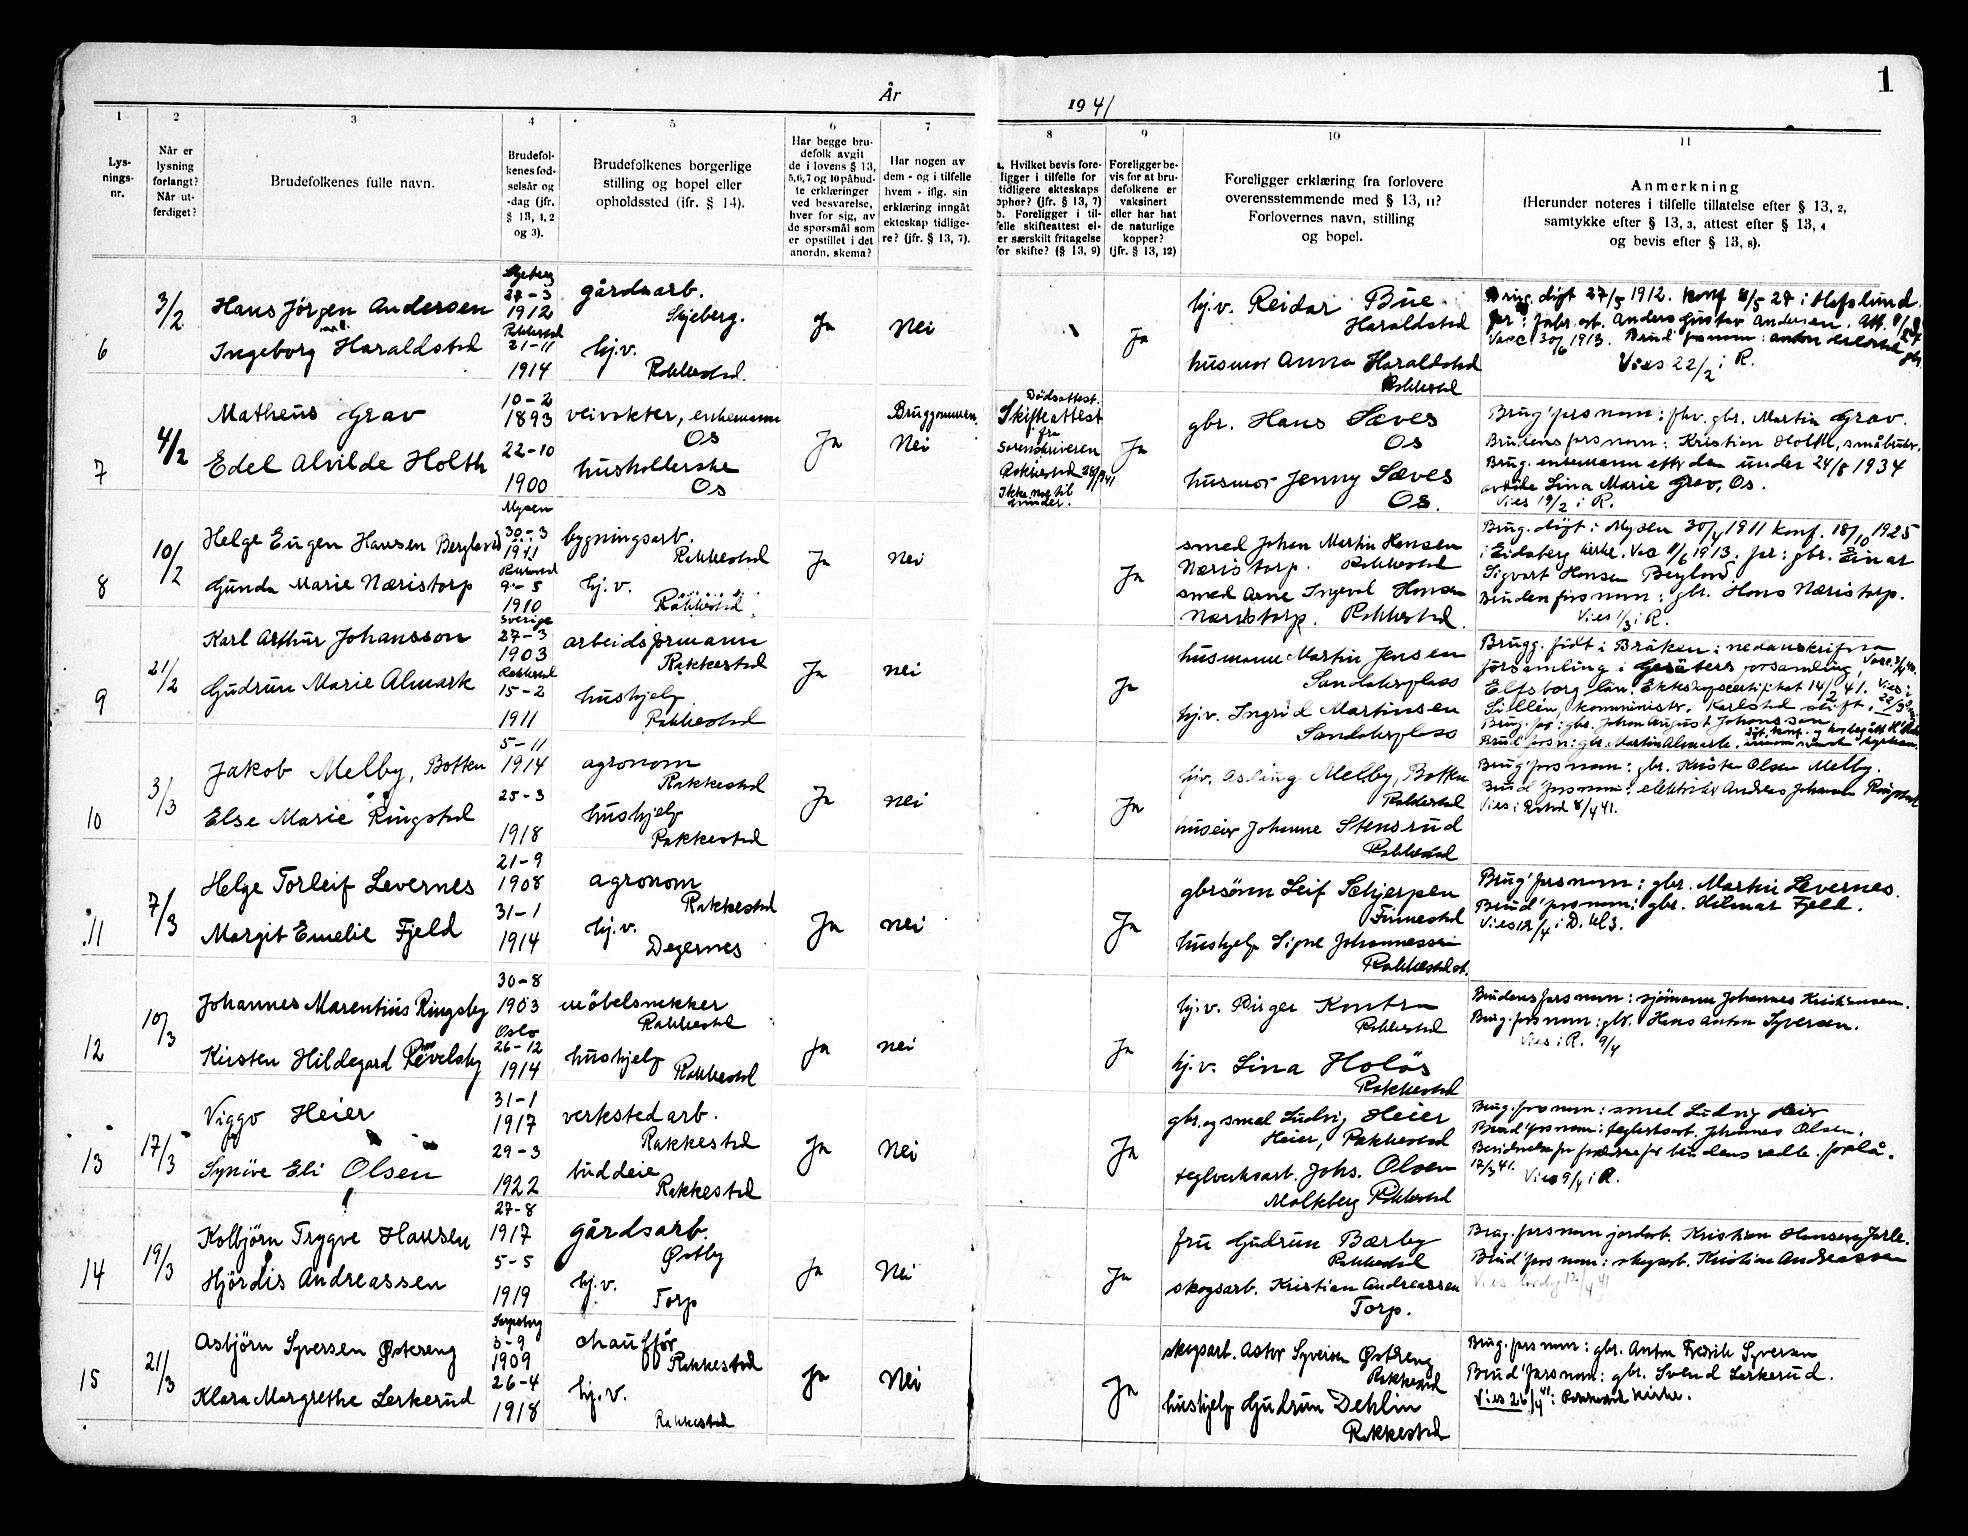 1
År
19 41
1
2
3
4
5
6
7
8
9
10
11
Lys-
nings-
nr.
Når er
lysning
forlangt?
Når ut-
ferdiget?
Brudefolkenes fulle navn.
Brudefol-
kenes fød-
selsår og
-dag (jfr.
§ 13, 1, 2
og 3).
Brudefolkenes borgerlige
stilling og bopel eller
opholdssted (ifr. § 14).
Har begge bru-
defolk avgit
de i lovens § 13,
5, 6, 7 og 10 påbud-
te erklæringer
ved besvarelse,
hver for sig, av
de spørsmål som
er opstillet i det
anordn. skema?
Har nogen av
dem - og i tilfelle
hvem - iflg. sin
erklæring inngåt
ekteskap tidlige-
re? (jfr. § 13, 7).
a. Hvilket bevis fore-
ligger i tilfelle for
tidligere ekteskaps
ophør? (jfr. § 13, 7)
b. Foreligger i til-
felle skifteattest el-
er særskilt fritagelse
for skifte? (§ 13, 9)
Foreligger be-
vis for at bru-
defolkene er
vaksinert
eller har hat
de naturlige
kopper?
(jfr. § 13, 12)
Foreligger erklæring fra forlovere
overensstemmende med § 13, 11?
Forlovernes navn, stilling
og bopel.
Anmerkning
(Herunder noteres i tilfelle tillatelse efter § 13, 2,
samtykke efter § 13, 3, attest efter § 13, 4
og bevis efter § 13, 8).
6
3/2
Hans Jörgen Andersen
Ingeborg Haraldstad
Skjeberg
27-3
1912
Rakkestad
21-11
1914
gårdsarb.
Skjeberg.
hj.v.
Rakkestad.
Ja
Nei
Ja
hj.v. Reidar Bue
Haraldstad
husmor Anna Haraldstad
Rakkestad
Brug. döpt 27/5 1912. Konf 8/5 27 i Hafslund.
far: fabr. arb. Anders Gustav Andersen.
Vacc 30/6 1913.
Vies 22/2 i R.
7
4/2
Matheus Grav
Edel Alvilde Holth
10-2
1893
22-10
1900
veivokter, enkemann
Os
husholderske
Os
Ja
Bruggommen.
Nei
Dødsattest.
Skifteattest
fra
Sorenskriveren
Ikke noe til
hinder.
Ja
gbr. Hans Sæves
Os
husmor Jenny Sæves
Os.
Brug' fars navn: fhv. gbr. Martin Grav.
Brudens fars navn: Kristian Holth, småbruker.
Brug. enkemann efter den under 24/8 1934
avdöde Lina Marie Grav, Os.
Vies 19/2 i R.
8
10/2
Helge Eugen Hansen Berglund
Gunda Marie Næristorp
Mysen
30-3
1911
Rakkestad
9-5
1910
bygningsarb.
Rakkestad
hj.v.
Rakkestad
Ja
Nei
Ja
smed Johan Martin Hansen
Næristorp. Rakkestad
smed Arne Ingeval Hansen
Næristorp. Rakkestad.
Brug. döpt i Mysen 30/4 1911 Konf. 18/10 1925
i Eidsberg kirke. Vac 11/6 1913. far: gbr. Einar
Sigvart Hansen Berglund.
Brudens fars navn: gbr. Hans Næristorp.
Vies 1/3 i R.
9
21/2
Karl Arthur Johansson
Gudrun Marie Almark
Sverige
27-3
1903
Rakkestad
15-2
1911
arbeidsformann
Rakkestad
hushjelp
Rakkestad
Ja
Nei
Ja
husmann Martin Jensen
Sandakerplass
hj.v. Ingrid Martinsen
Sandakerplass
Brugg. födt i Bråken i nedanskrifna
församling i församling,
Elfsborg län. Ekteskapscertifikat 14/2 41.
komminister, Karlstad stift.
Brug. far: gbr. Johan August Johansson
Brud' fars n: gbr. Martin Almark.
10
3/3
Jakob Melby, Botten
Else Marie Ringstad
5-11
1914
25-3
1918
agronom
Rakkestad
hushjelp
Rakkestad
Ja
Nei
Ja
hj.v. Aslaug Melby, Botten
Rakkestad
huseier Johanne Stensrud
Rakkestad
Brug' fars navn: gbr. Kristen Olsen Melby.
Brud' fars navn: elektriker Andreas Johansen Ringstad
Vies i Rakkestad 8/4 41.
11
7/3
Helge Torleif Levernes
Margit Emelie Fjeld
21-9
1908
31-1
1914
agronom
Rakkestad
hj.v.
Degernes
Ja
Nei
Ja
gbrsönn Leif Schjerpen
Finnestad
hushjelp Signe Johannessen
Rakkestad st.
Brug' fars navn: gbr. Martin Levernes.
Brud' fars navn: gbr. Hilmar Fjeld.
Vies 12/4 i D. kl 3.
12
10/3
Johannes Marentius Ringsby
Kirsten Hildegard Revelsby
30-8
1903
Oslo
26-12
1914
möbelsnekker
Rakkestad
hushjelp
Rakkestad
Ja
Nei
Ja
hj.v. Birger Kontra
Rakkestad
hj.v. Lina Holös
Rakkestad
Brudens fars navn: sjömann Johannes Kristiansen.
Brug. fars navn: gbr. Hans Anton Syversen.
Vies i R. 9/4
13
17/3
Viggo Heier
Synöve Eli Olsen
31-1
1917
29-3
1922
verkstedarb.
Rakkestad
buddeie
Rakkestad
Ja
Nei
Ja
gbr. og smed Ludvig Heier
Heier, Rakkestad
teglverksarb. Johs. Olsen
Molkberg Rakkestad
Brug. fars navn: smed Ludvig Heier
Brud' fars navn: teglverksarb. Johannes Olsen.
17/3 41.
Vies 9/4 i R.
14
19/3
Kolbjörn Trygve Hansen
Hjördis Andreassen
27-8
1917
5-5
1919
gårdsarb.
Østby
hj.v.
Torp
Ja
Nei
Ja
fru Gudrun Bærby
Rakkestad
skogsarb. Kristian Andreassen
Torp.
Brug. fars navn jordarb. Kristian Hansen,
Brud' fars navn: skogsarb. Kristian Andreassen
15
21/3
Asbjörn Syversen Østereng
Klara Margrethe Lerkerud
Sarpsborg
3-9
1909
26-4
1918
chaufför
Rakkestad
hj.v.
Rakkestad
Ja
Nei
Ja
skogsarb. Astor Syversen Østreng
Rakkestad
hushjelp Gudrun Dehlin
Rakkestad
Brug. fars navn: gbr. Anton Fredrik Syversen
Brud' fars navn: gbr. Svend Lerkerud.
Vies 26/4 41 i Rakkestad kirke.